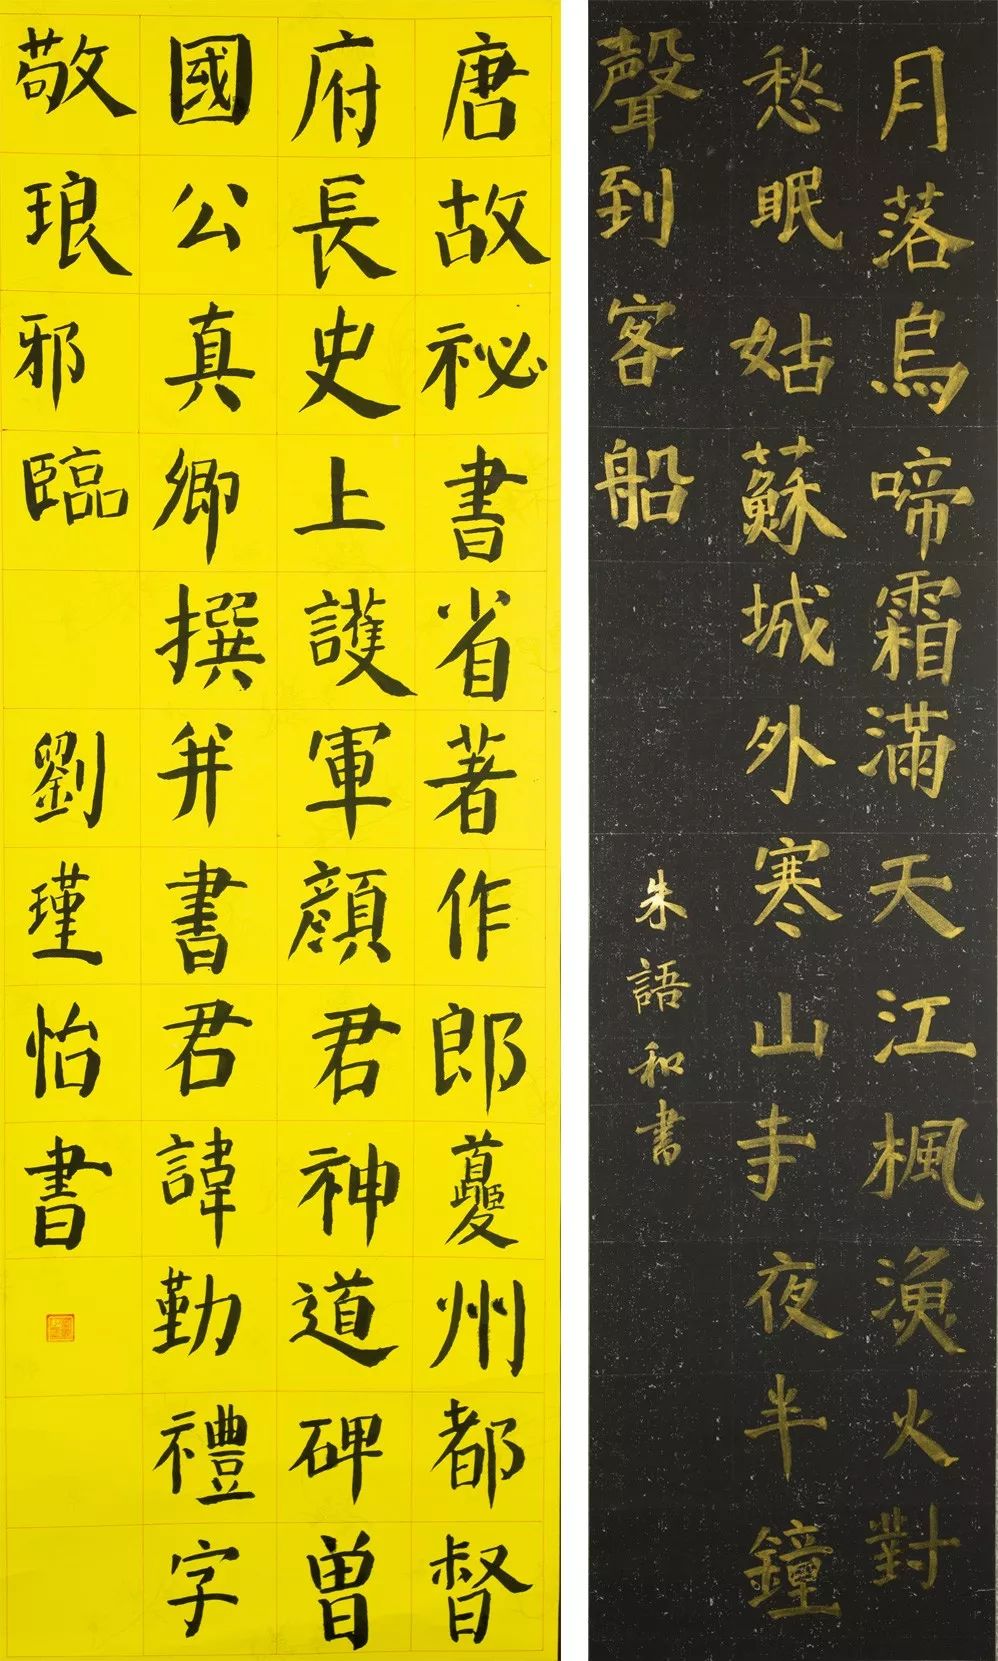 唐故祕書省著作郎夔州都督
府長史上護軍顏君神道碑曾
國公真卿撰并書君諱勤禮字
敬琅邪臨 劉瑾怡書
月落烏啼霜滿天江楓漁火對
愁眠姑蘇城外寒山寺夜半鐘
聲到客船
朱語和書